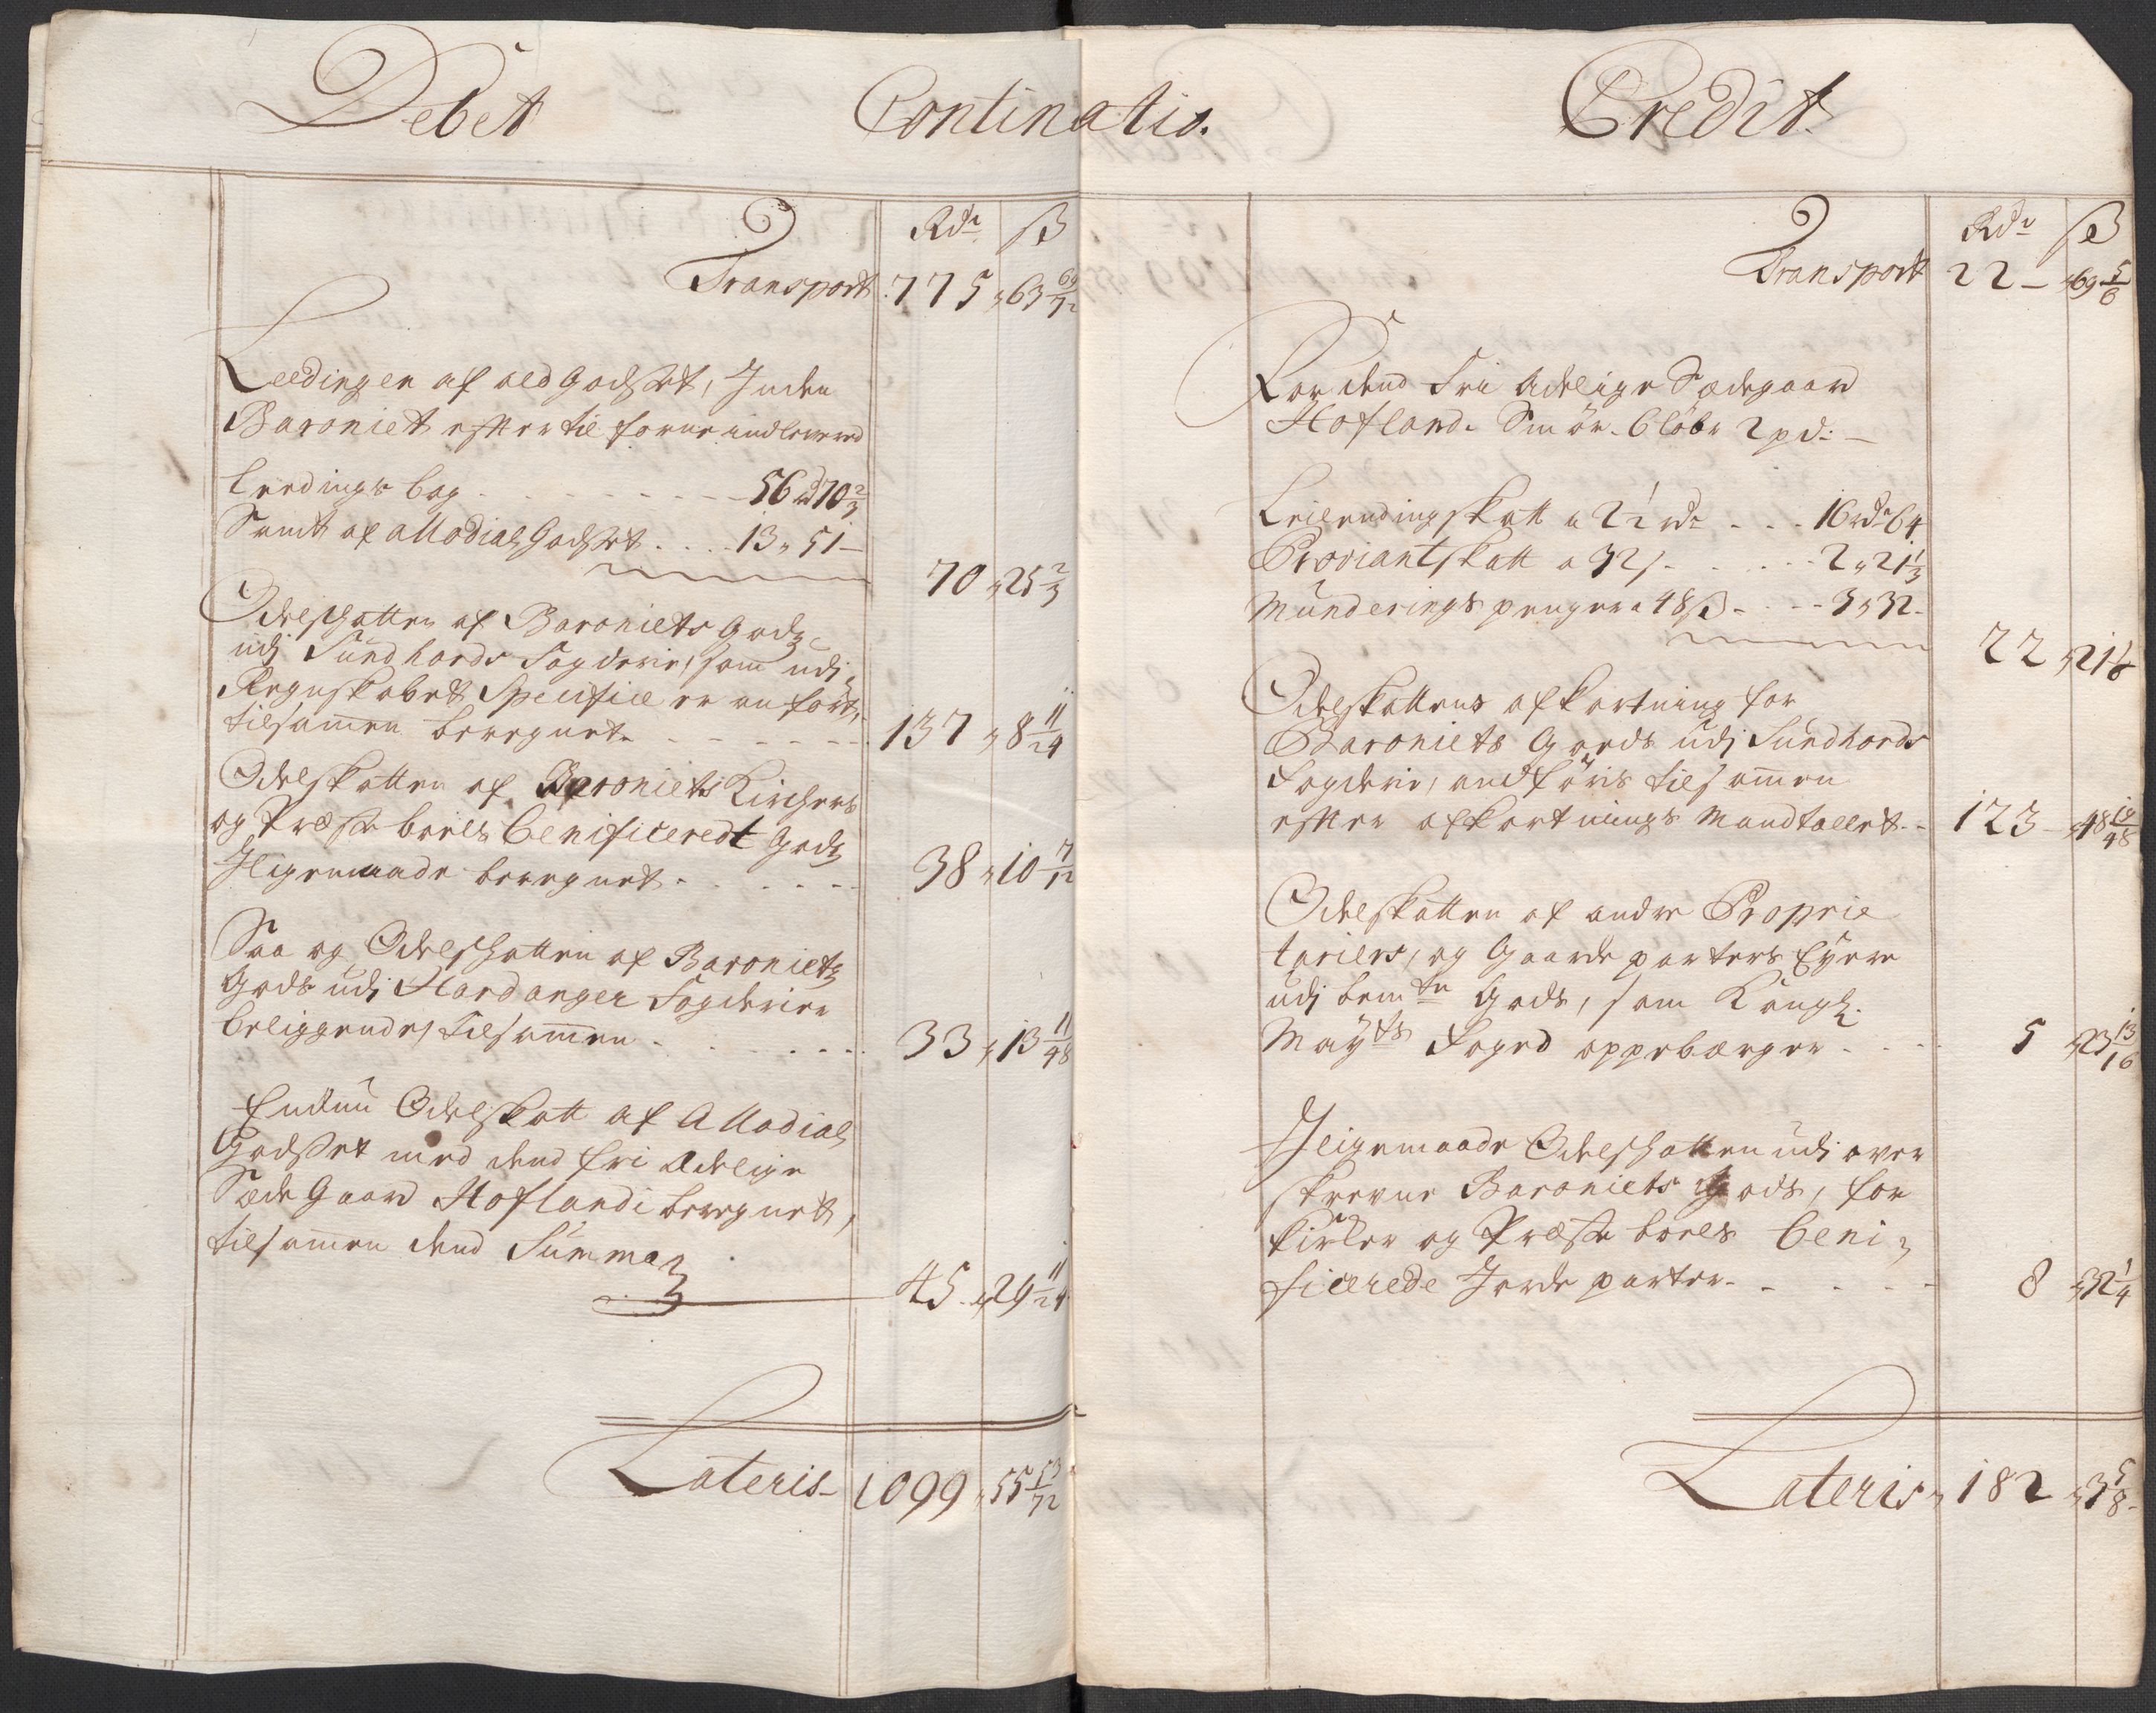 Debet Continatio. Credit
Rdr ß
Transport 775 „ 63 69/72
Leedingen af ald Godset, Inden
Baroniet efter til forne indleverved
Leedings bog - - - 56 rd 70 2/3
Samt af allodial Godset . . . 13 „ 51 -
70 „ 25 2/3
Odelschatten af Baroniets Godz
udj Sundhords Fogderie, som udi
Regnskabet Specifice er anført,
tilsammen beregnet - - - 137 „ 8 11/24
Odelskatten af Baroniets Kirchers
og Præste boels Beneficeredt Gods
Iligemaade beregnet - - - 38 „ 10 7/12
Saa og Odelschatten af Baroniets
Gods udj Hardanger Fogderier
beliggende, tilsammen - - - 33 „ 13 11/48
Endnu Odelskatt af Allodial
Godset med dend fri Adelige
Sæde Gaard Hoflandi beregnet,
tilsammen dend Summa
45 „ 29 11/24
Lateris - 1099 „ 55 53/72
Rdr ß
Transport 22 - „ 69 5/6
For dend Frie Adelige Sædegaard
Hofland. Smør. 6 løber 2 pd: -
Leilendingskatt a 2 1/2 rdr - - - 16 rdr 64
Proviantskatt a 32 ß - - - 2 „ 21 1/3
Munderings penger a 48 ß - - - 3 „ 32 -
22 „ 21 1/3
Odelskattens afkortning for
Baroniets Gords udj Sundhords
Fogderie, andføris tilsammen
efter afkortnings Mandtallet - - 123 - „ 48 19/48
Odelskatten af andre Proprie
tariers, og Gaarde parters Eyere
udj bemte Gods, som Kongl:
Mayts Foged oppebærger - - - 5 „ 23 13/16
Iligemaade Odelschatten udj over
skrevne Baroniets Gods, for
Kirker og Præste boels Beni,
ficerede Jorde parter - - - 8 „ 32 1/4
Lateris „ 182 „ 3 5/8 -